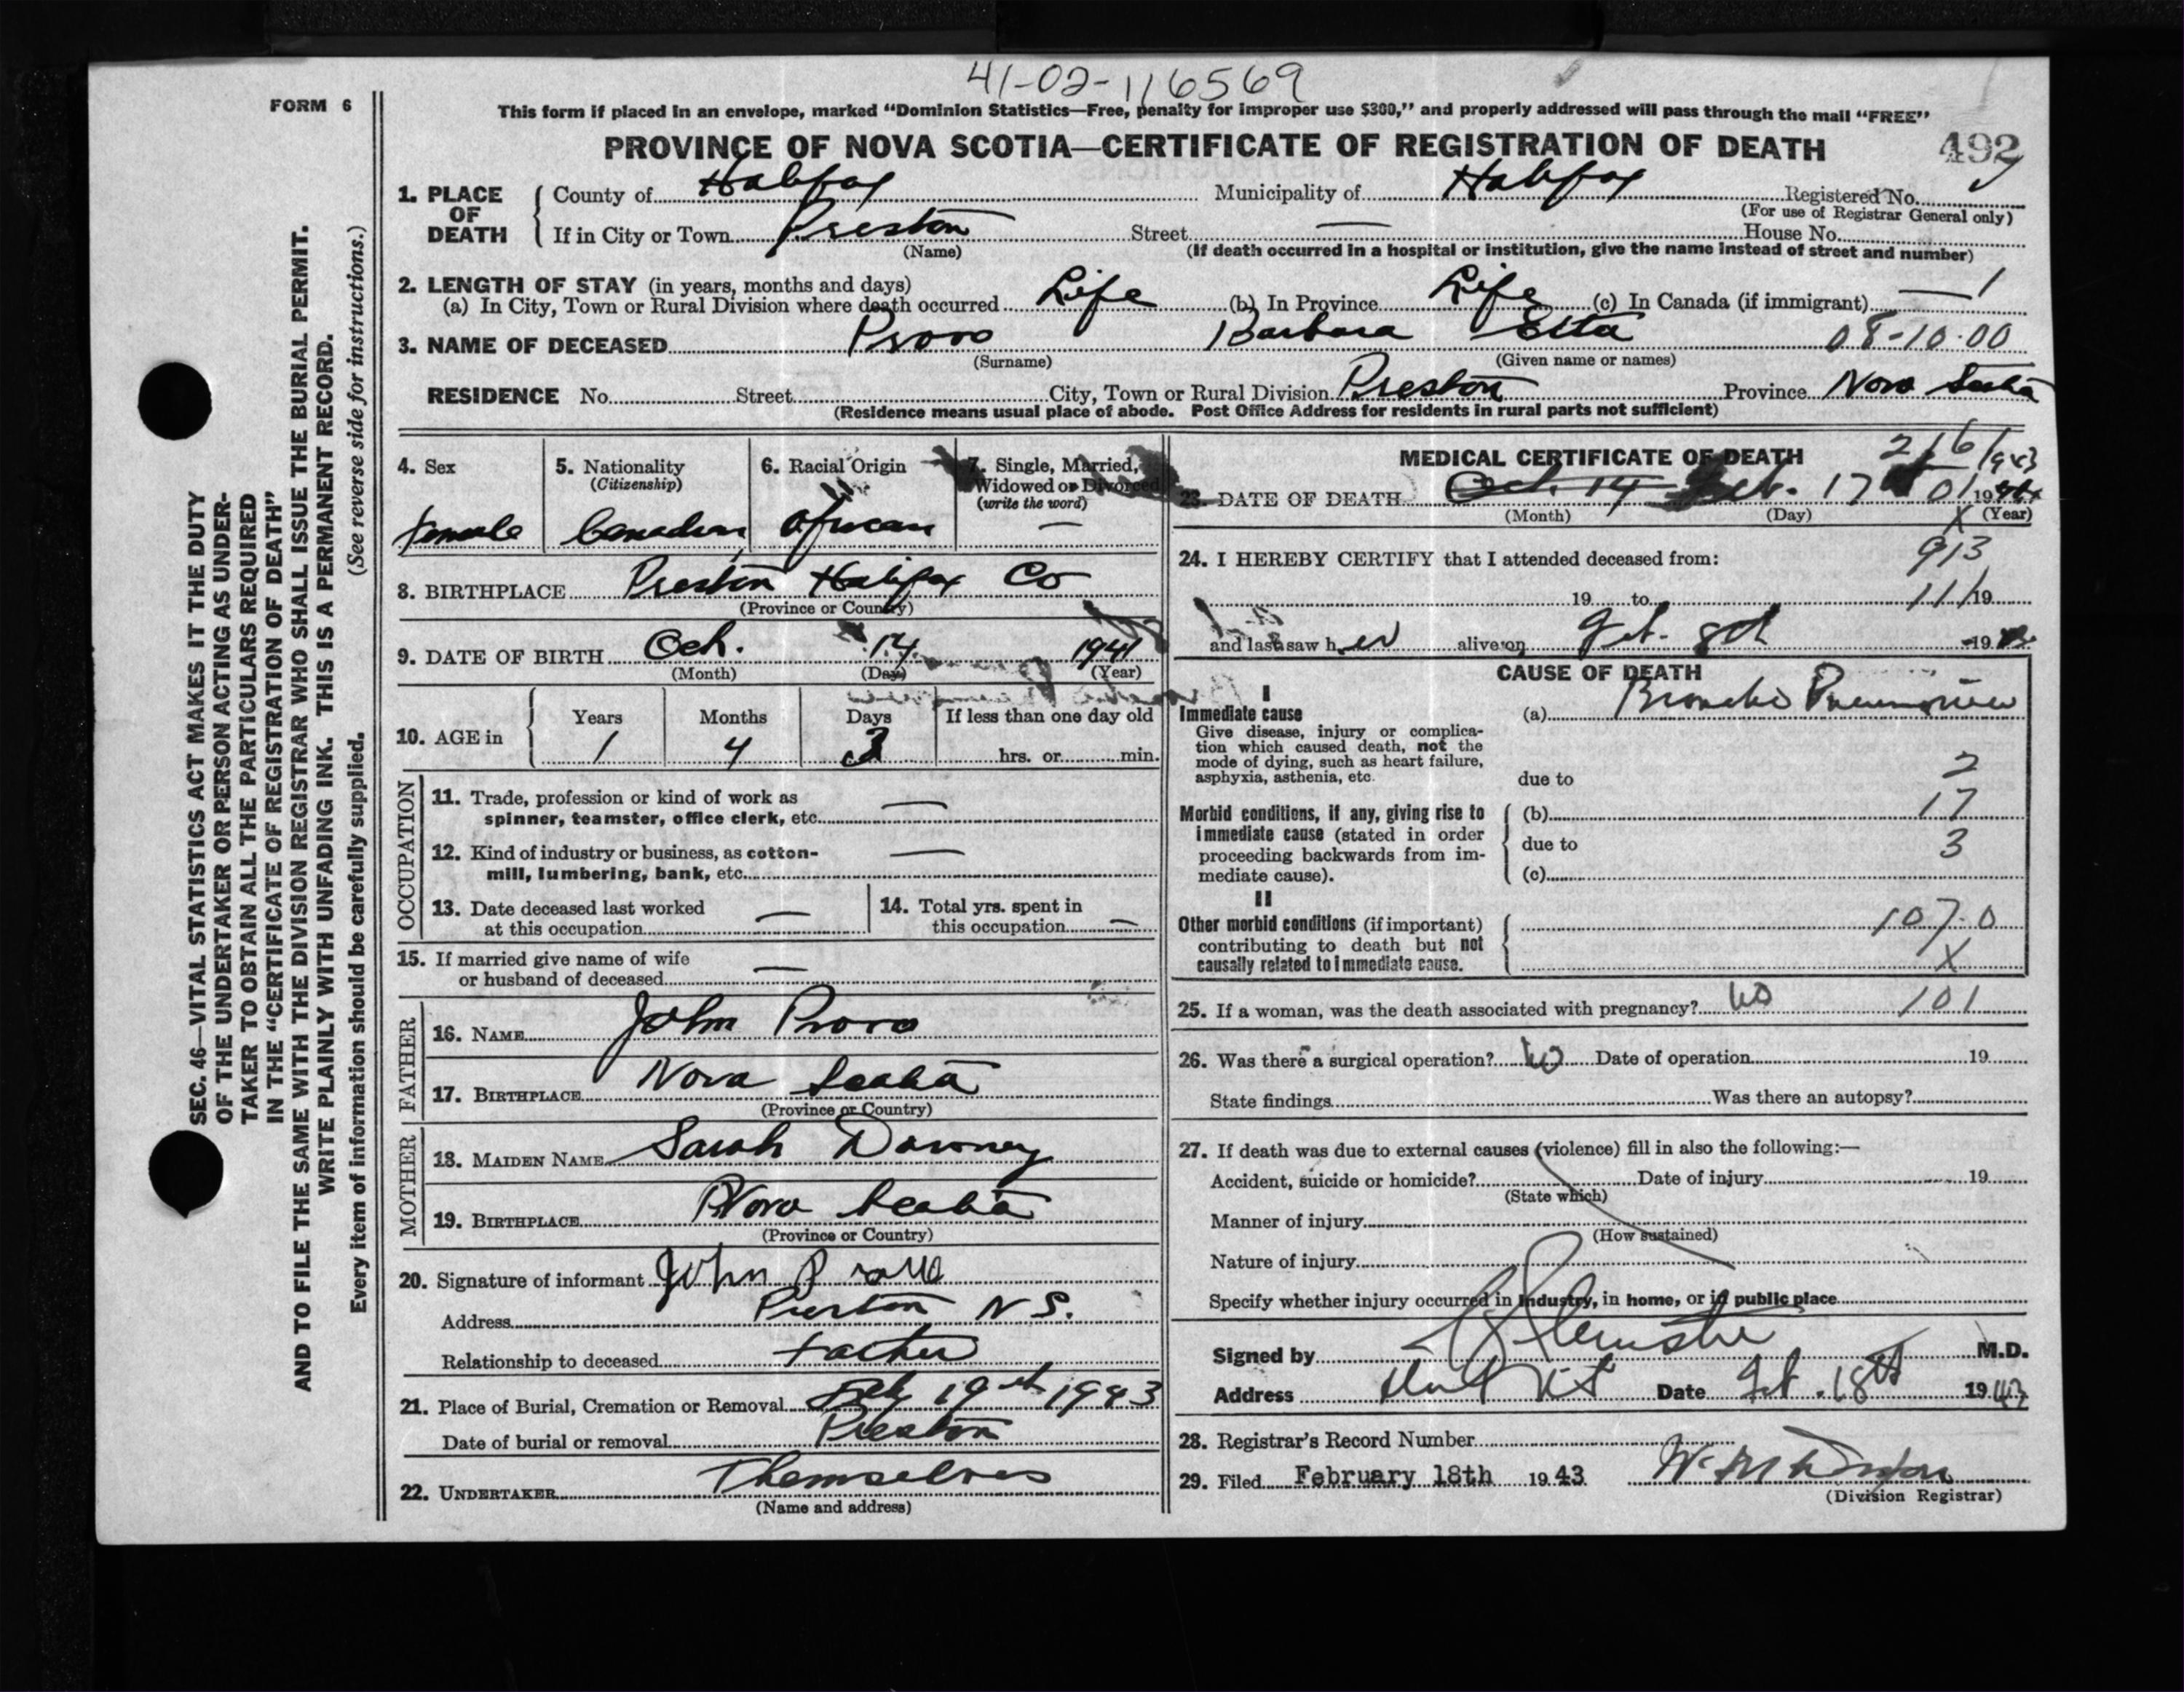 41-02-116569
FORM 6
This form if placed in an envelope, marked "Dominion Statistics—Free, penalty for improper use $300," and properly addressed will pass through the mail "FREE"
PROVINCE OF NOVA SCOTIA—CERTIFICATE OF REGISTRATION OF DEATH
492
1. PLACE OF DEATH County of Halifax Municipality of Halifax Registered No.
(For use of Registrar General only)
If in City or Town Preston Street — House No.
(Name) (If death occurred in a hospital or institution, give the name instead of street and number)
2. LENGTH OF STAY (in years, months and days)
(a) In City, Town or Rural Division where death occurred Life (b) In Province Life (c) In Canada (if immigrant) — 1
3. NAME OF DECEASED Provo Barbara Etta 08-10-00
(Surname) (Given name or names)
RESIDENCE No. Street City, Town or Rural Division Preston Province Nova Scotia
(Residence means usual place of abode. Post Office Address for residents in rural parts not sufficient)
SEC. 46—VITAL STATISTICS ACT MAKES IT THE DUTY
OF THE UNDERTAKER OR PERSON ACTING AS UNDER-
TAKER TO OBTAIN ALL THE PARTICULARS REQUIRED
IN THE "CERTIFICATE OF REGISTRATION OF DEATH"
AND TO FILE THE SAME WITH THE DIVISION REGISTRAR WHO SHALL ISSUE THE BURIAL PERMIT.
WRITE PLAINLY WITH UNFADING INK. THIS IS A PERMANENT RECORD.
Every item of information should be carefully supplied. (See reverse side for instructions.)
4. Sex
female
5. Nationality
(Citizenship)
Canadian
6. Racial Origin
African
7. Single, Married,
Widowed or Divorced
(write the word)
—
8. BIRTHPLACE Preston Halifax Co
(Province or Country)
9. DATE OF BIRTH Oct. 14 1941
(Month) (Day) (Year)
10. AGE in Years Months Days If less than one day old
1 4 3 hrs. or min.
OCCUPATION
11. Trade, profession or kind of work as
spinner, teamster, office clerk, etc. —
12. Kind of industry or business, as cotton-
mill, lumbering, bank, etc. —
13. Date deceased last worked
at this occupation —
14. Total yrs. spent in
this occupation —
15. If married give name of wife
or husband of deceased —
FATHER
16. NAME John Provo
17. BIRTHPLACE Nova Scotia
(Province or Country)
MOTHER
18. MAIDEN NAME Sarah Downey
19. BIRTHPLACE Nova Scotia
(Province or Country)
20. Signature of informant John Provo
Address Preston N S.
Relationship to deceased Father
21. Place of Burial, Cremation or Removal Feb 19th 1943
Date of burial or removal Preston
22. UNDERTAKER Themselves
(Name and address)
MEDICAL CERTIFICATE OF DEATH
23. DATE OF DEATH Oct. 14 Feb. 17 01 19
(Month) (Day) (Year)
1943
24. I HEREBY CERTIFY that I attended deceased from:
913
19 to 11/19
and last saw her alive on Feb. 8th 19
CAUSE OF DEATH
I
Immediate cause
Give disease, injury or complica-
tion which caused death, not the
mode of dying, such as heart failure,
asphyxia, asthenia, etc.
(a) Broncho Pneumonia
due to 2
Morbid conditions, if any, giving rise to
immediate cause (stated in order
proceeding backwards from im-
mediate cause).
(b) 17
due to 3
(c)
II
Other morbid conditions (if important)
contributing to death but not
causally related to immediate cause.
107.0
X
25. If a woman, was the death associated with pregnancy? no 101
26. Was there a surgical operation? no Date of operation 19
State findings Was there an autopsy?
27. If death was due to external causes (violence) fill in also the following:—
Accident, suicide or homicide? Date of injury 19
(State which)
Manner of injury
(How sustained)
Nature of injury
Specify whether injury occurred in industry, in home, or in public place
Signed by M.D.
Address Date Feb. 18th 1943
28. Registrar's Record Number
29. Filed February 18th 1943
(Division Registrar)